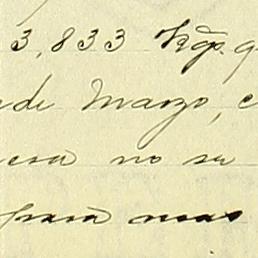 3,833 Kgs. q
de Marzo, e
era no se
para mas